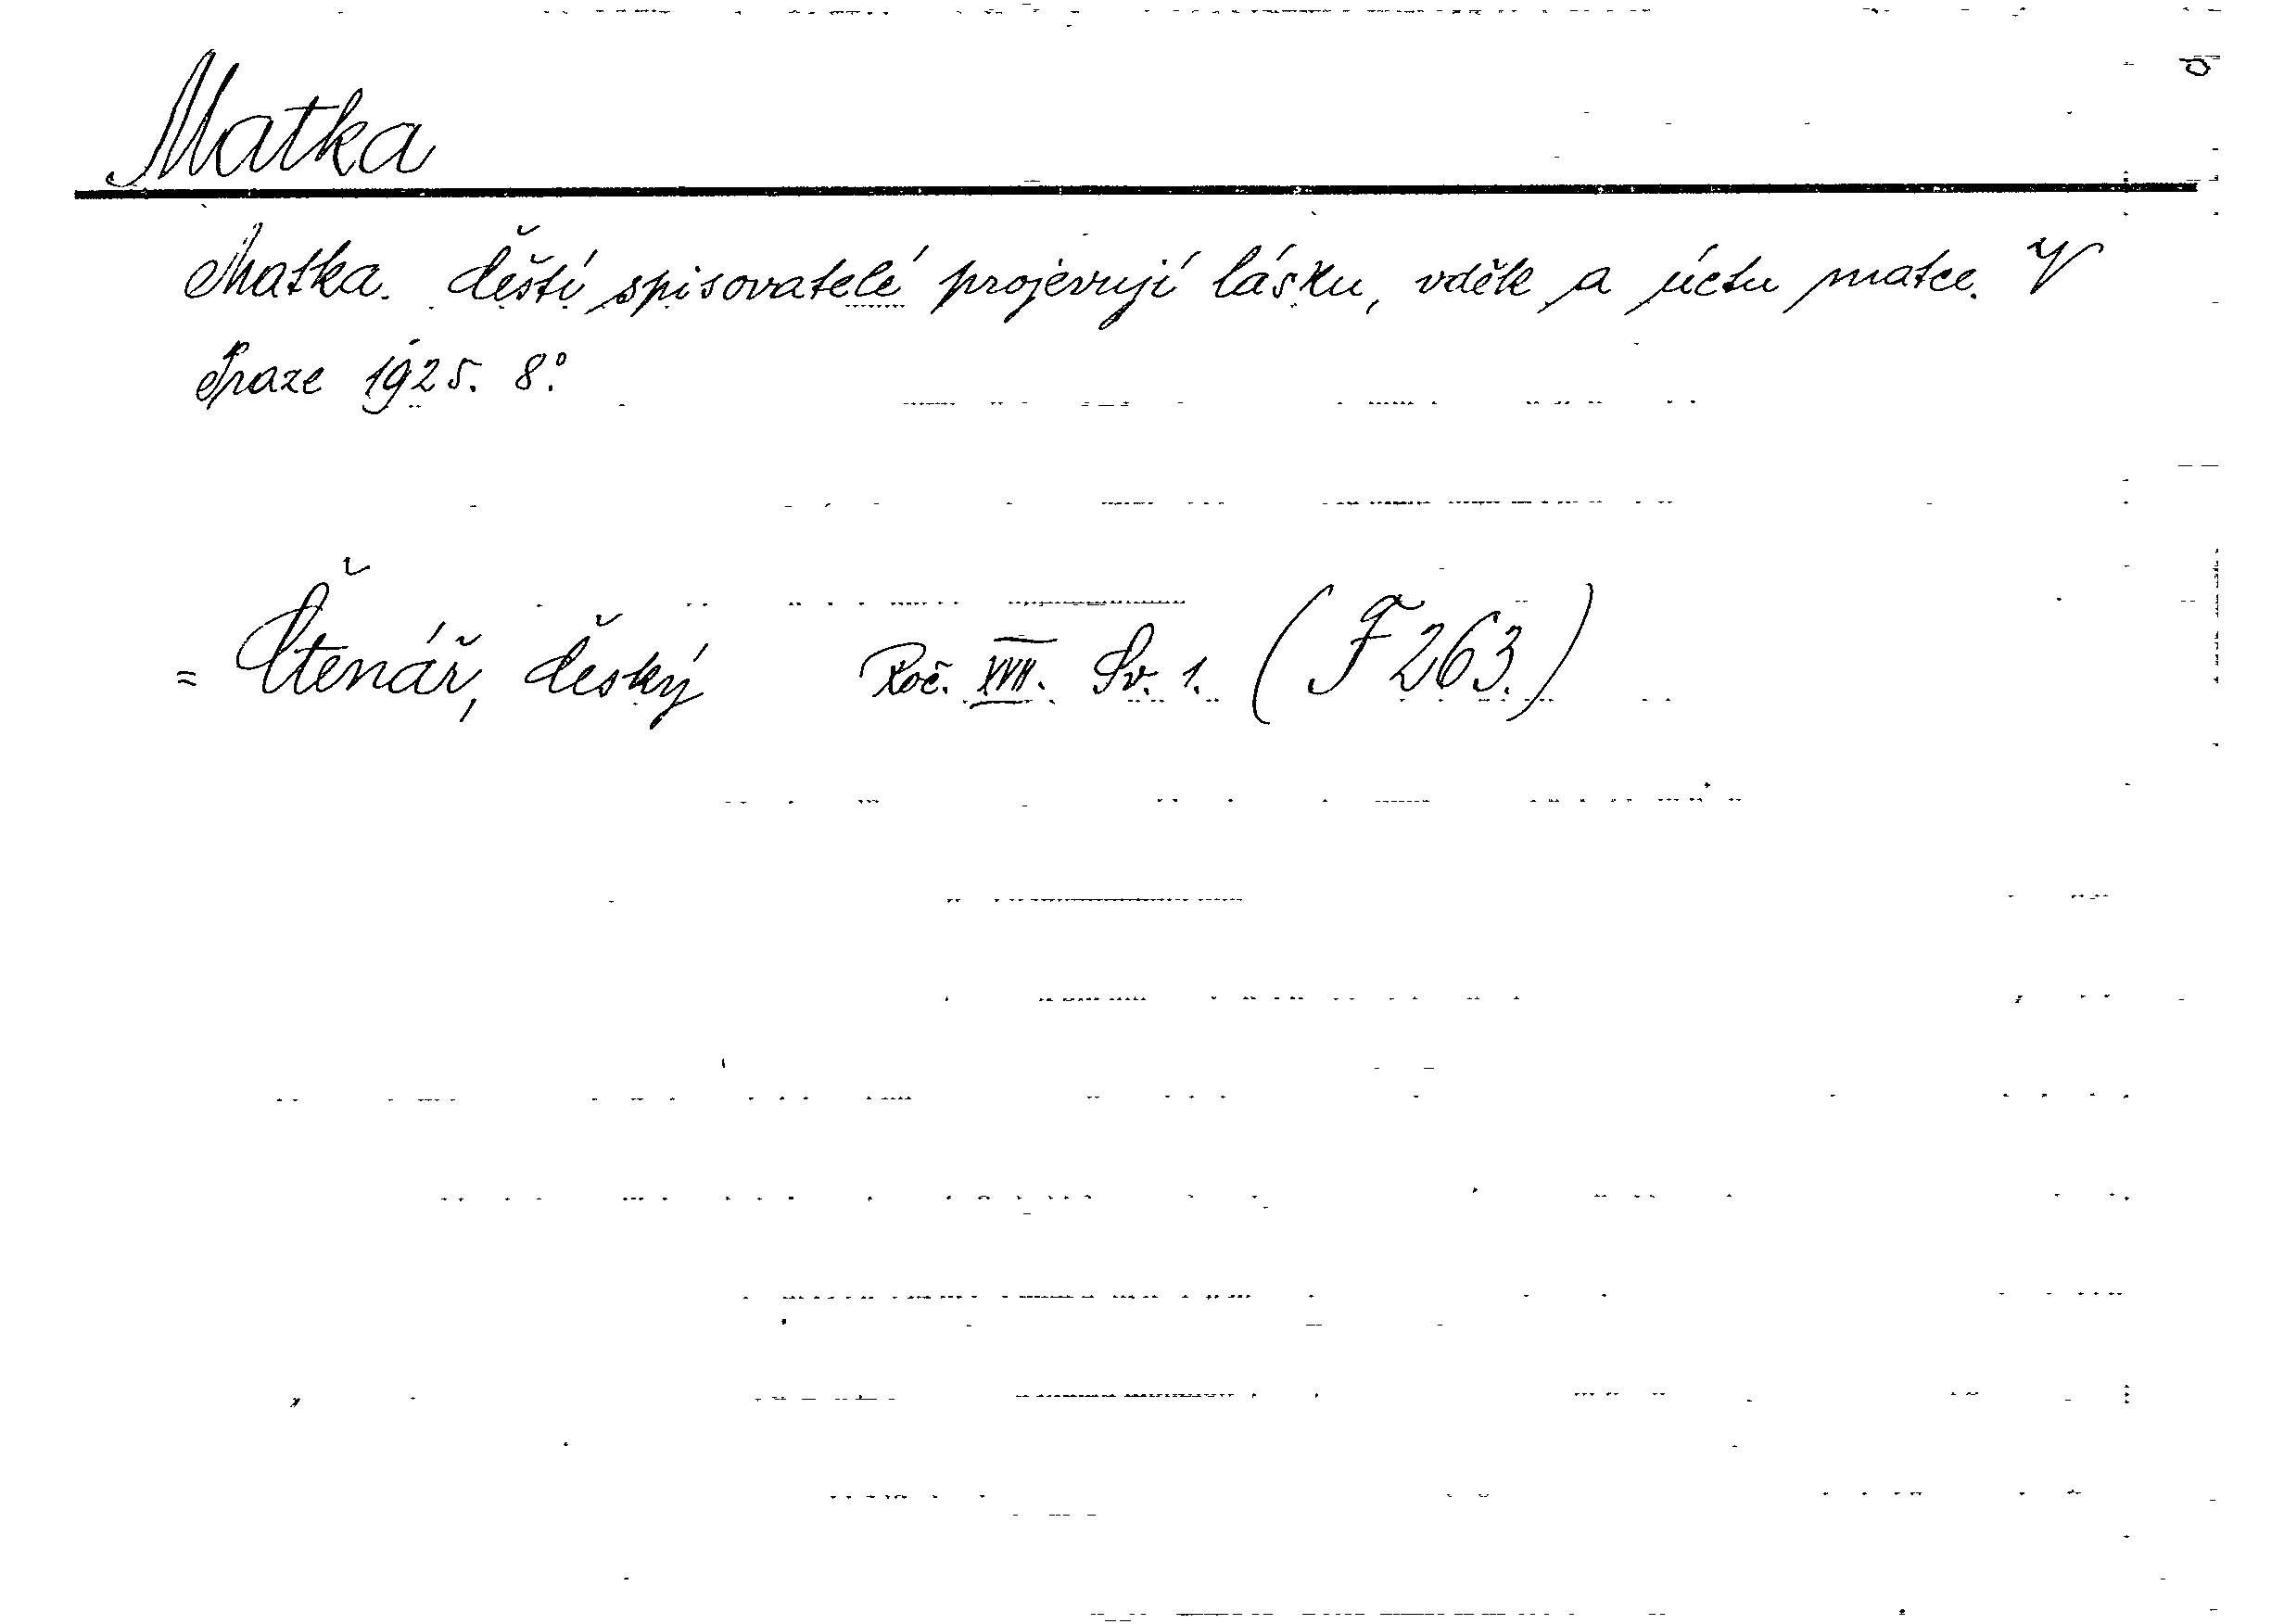 Matka
Matka. Čeští spisovatelé projevují lásku, vděk a úctu matce. V
Praze 1925. 8°.
= Čtenář, český Roč. XVII. Sv. 1. (F 263.)